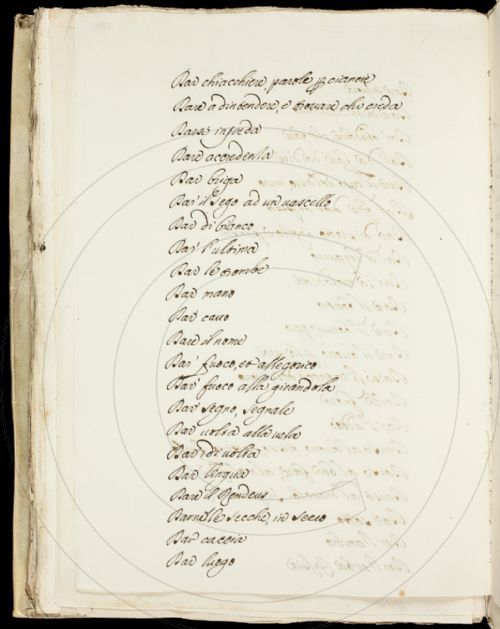 Dar chiacchiere, parole per cicancie
Dare ad intendere, e trovare chi creda
Darsi in preda
Dare accredenza
Dar briga
Dar il sego ad un vascello
Dar di bianco
Dar l'ultima
Dar le trombe
Dar mano
Dar cavo
Dare il nome
Dar fuoco, et allegorico
Dar fuoco alla girandola
Dar segno, segnale
Dar volta alla vela
Dar di volta
Dar lingua
Dare il Rendeus
Dar nelle secche, in secco
Dar caccia
Dar luogo